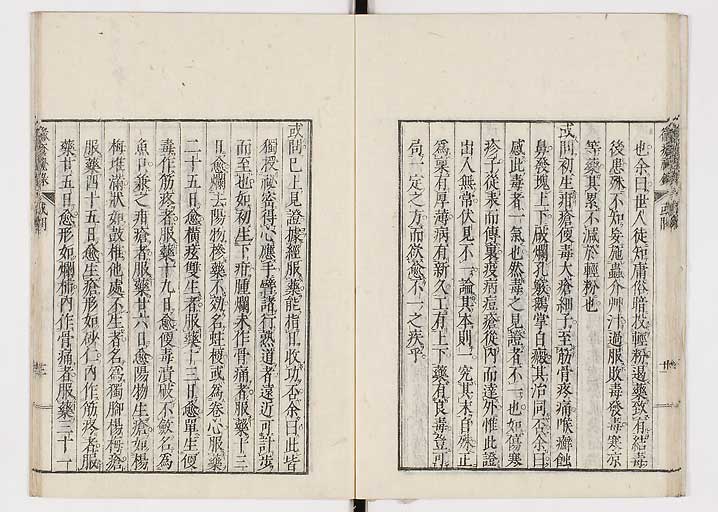 也余曰世人徒知庸俗暗投輕粉退藥致有結毒
後患殊不知妄施蟲介艸汁過服敗毒發毒寒凉
等藥其累不減於輕粉也
或問初生疳瘡便毒大瘡細子至筋骨疼痛喉癬蝕
鼻發塊上下成爛孔鵞掌自癜其治同否余曰
感此毒者一氣也然毒之見證者不一也如傷寒
疹子從表而傳裏疫病痘瘡從內而達外惟此證
出入無常伏見不一論其本則一究其末自殊正
爲稟有厚薄病有新久工有上下藥有良毒豈可
局一定之方而欲愈不一之疾乎
或問已上見證據經服藥能指日收功否余曰此皆
獨授祕密得心應手譬諸行熟道者遠近可計步
而至也如初生下疳腫爛未作骨痛者服藥十三
日愈爛去陽物諸藥不効名蛀梗或爲卷心服藥
二十五日愈橫痃雙生者服藥十三日愈單生便
毒作筋疼者服藥十九日愈便毒潰破不斂名爲
魚口兼之疳瘡者服藥廿六日愈陽物生瘡如楊
梅堆滿狀如鼓椎他處不生者名爲獨腳楊梅瘡
服藥四十五日愈生瘡形如砂仁內作筋疼者服
藥廿五日愈形如爛柿內作骨痛者服藥三十一
或問